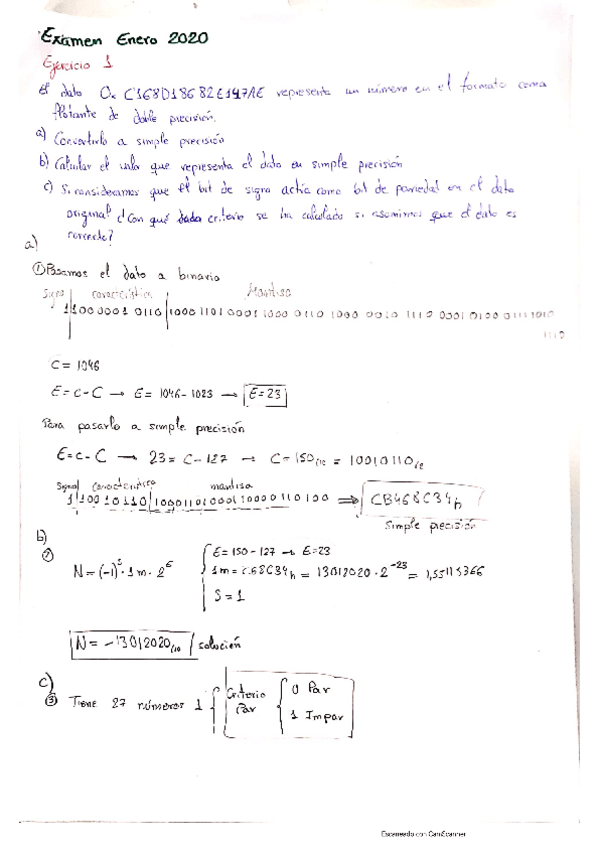 Examen Enero 2020
Ejercicio 1
El dato 0x C168D18682E147AE representa un número en el formato coma
flotante de doble precisión.
a) Convertirlo a simple precisión
b) Calcular el valor que representa el dato en simple precisión
c) Si consideramos que el bit de signo actúa como bit de paridad en el dato
original ¿Con qué criterio se ha calculado si asumimos que el dato es
correcto?
a)
① Pasamos el dato a binario
Signo característica Mantisa
1|1000001 0110|1000 1101 0001 1000 0110 1000 0010 1110 0001 0100 0111 1010
1110
C = 1046
E = c - C → E = 1046 - 1023 → E = 23
Para pasarlo a simple precisión
E = c - C → 23 = C - 127 → C = 150/10 = 10010110/2
Signo característica mantisa
1|10010110|10001101000110000110100 ⇒ CB468C34h
simple precisión
b)
②
N = (-1)^s · 1m · 2^E
E = 150 - 127 → E = 23
= 13012020 · 2^-23 =
S = 1
N = -13012020/10 solución
c)
③ Tiene 27 números 1
Criterio
Par
0 Par
1 Impar
Escaneado con CamScanner